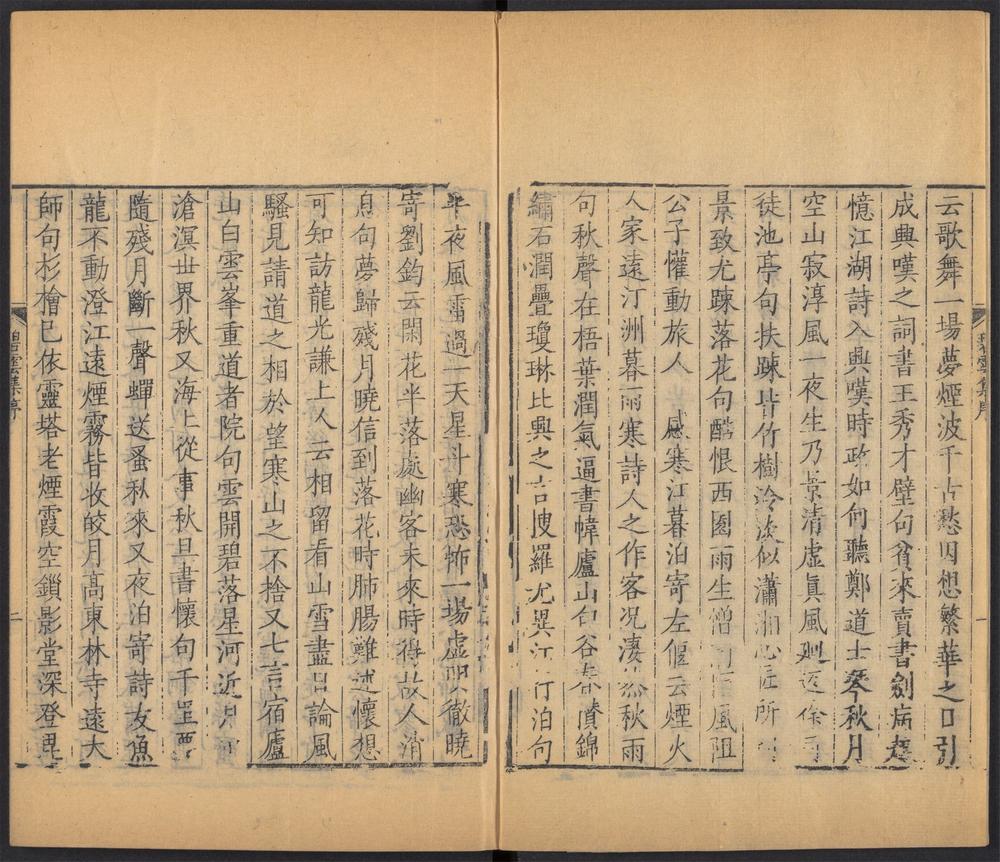 云歌舞一場夢煙波千古愁因想繁華之口引
成典嘆之詞書王秀才壁句貧來賣書劍病起
憶江湖詩入興嘆時政如何聽鄭道士琴秋月
空山寂淳風一夜生乃景清虛真風迥近徐司
徒池亭句扶踈皆竹樹泠淡似瀟湘心匠所
景致尤踈落花句酷恨西園雨生憎南風阻
公子懽動旅人感寒江暮泊寄左偃云煙火
人家遠汀洲暮雨寒詩人之作客况淒然秋雨
句秋聲在梧葉潤氣逼書幃廬山句谷春濆錦
繡石潤疊瓊琳比興之言捜羅尤異江行泊句
半夜風雷過一天星斗寒恐怖一場虛明徹曉
寄劉鈞云閑花半落處幽客未來時得故人消
息句夢歸殘月曉信到落花時肺腸難述懷想
可知訪龍光謙上人云相留看山雪盡日論風
騷見請道之相於望寒山之不捨又七言宿廬
山白雲峯重道者院句雲開碧落星河近月
滄溟世界秋又海上從事秋日書懷句千里
隨殘月斷一聲蟬送蚤秋來又夜泊寄詩友魚
龍不動澄江遠煙霧皆收皎月高東林寺遠大
師句杉檜已依靈塔老煙霞空鎖影堂深登毘
碧雲集序
二
碧雲集序
一